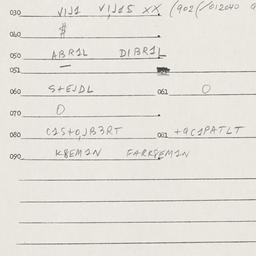 030 VIJ1 VIJ15 XX (902(/012040
040 $
050 ABR1L DIBR1L
051 —
060 S+EJDL 061 O
070 O
080 C1S+O,JB3RT 061 +9C1PATLT
090 K8EM1N FARK8EM1N